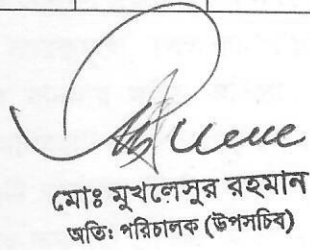 মোঃ মুখলেসুর রহমান
অতি: পরিচালক (উপসচিব)